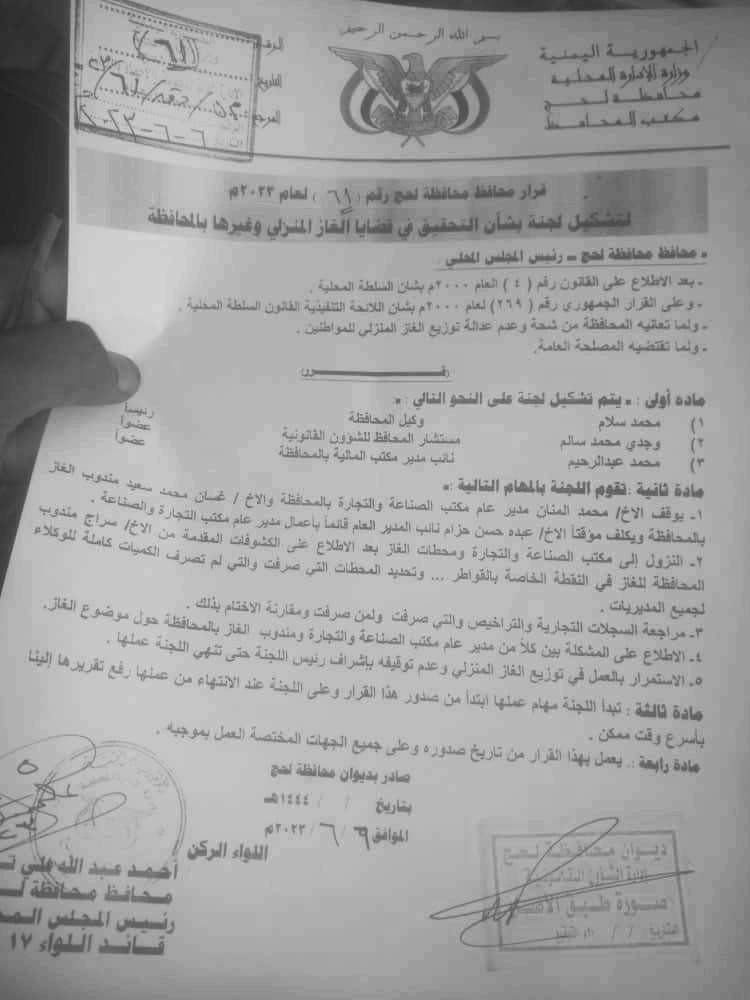 بسم الله الرحمن الرحيم
الجمهورية اليمنية
وزارة الإدارة المحلية
محافظة لحج
مكتب المحافظ
الرقم
(٦١)
التاريخ
المرجع
قرار محافظ محافظة لحج رقم (٦١) لعام ٢٠٢٣م
لتشكيل لجنة بشأن التحقيق في قضايا الغاز المنزلي وغيرها بالمحافظة
محافظ محافظة لحج – رئيس المجلس المحلي
- بعد الاطلاع على القانون رقم (٤) العام ٢٠٠٠م بشان السلطة المحلية .
- وعلى القرار الجمهوري رقم (٢٦٩) لعام ٢٠٠٠م بشان اللائحة التنفيذية القانون السلطة المحلية .
- ولما تعانيه المحافظة من شحة وعدم عدالة توزيع الغاز المنزلي للمواطنين .
- ولما تقتضيه المصلحة العامة.
(قـــــرر)
ماده أولى : يتم تشكيل لجنة على النحو التالي :
١) محمد سلام وكيل المحافظة رئيسا
٢) وجدي محمد سالم مستشار المحافظ للشؤون القانونية عضواً
٣) محمد عبدالرحيم نائب مدير مكتب المالية بالمحافظة عضواً
مادة ثانية : تقوم اللجنة بالمهام التالية :
١- يوقف الاخ/ محمد المنان مدير عام مكتب الصناعة والتجارة بالمحافظة والاخ / غسان محمد سعيد مندوب الغاز
بالمحافظة ويكلف مؤقتاً الاخ/ عبده حسن حزام نائب المدير العام قائماً بأعمال مدير عام مكتب التجارة والصناعة .
٢- النزول إلى مكتب الصناعة والتجارة ومحطات الغاز بعد الاطلاع على الكشوفات المقدمة من الاخ/ سراج مندوب
المحافظة للغاز في النقطة الخاصة بالقواطر ... وتحديد المحطات التي صرفت والتي لم تصرف الكميات كاملة للوكلاء
لجميع المديريات .
٣- مراجعة السجلات التجارية والتراخيص والتي صرفت ولمن صرفت ومقارنة الاختام بذلك .
٤- الاطلاع على المشكلة بين كلاً من مدير عام مكتب الصناعة والتجارة ومندوب الغاز بالمحافظة حول موضوع الغاز.
٥- الاستمرار بالعمل في توزيع الغاز المنزلي وعدم توقيفه بإشراف رئيس اللجنة حتى تنهي اللجنة عملها .
مادة ثالثة : تبدأ اللجنة مهام عملها ابتدأ من صدور هذا القرار وعلى اللجنة عند الانتهاء من عملها رفع تقريرها إلينا
بأسرع وقت ممكن .
مادة رابعة : يعمل بهذا القرار من تاريخ صدوره وعلى جميع الجهات المختصة العمل بموجبه .
صادر بديوان محافظة لحج
بتاريخ / / ١٤٤٤هـ
الموافق ٩ / ٦ / ٢٠٢٣م
اللواء الركن
أحمد عبد الله علي
محافظ محافظة
رئيس المجلس
قائد اللواء ١٧
ديوان محافظة لحج
صورة طبق الأصل
التاريخ / /